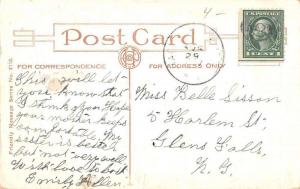 4-
Post Card
FOR CORRESPONDENCE
FOR ADDRESS ONLY
U.S. POSTAGE
1 CENT 1
25
Friendly Message Series No. 
This will let
you know that
I think of you. Hope
your mother keeps
comfortable. My
sister is better
but not very well.
With love to both
Emily Allen.
Miss Belle Sisson
5 Harlem St.
Glens Falls,
N.Y.